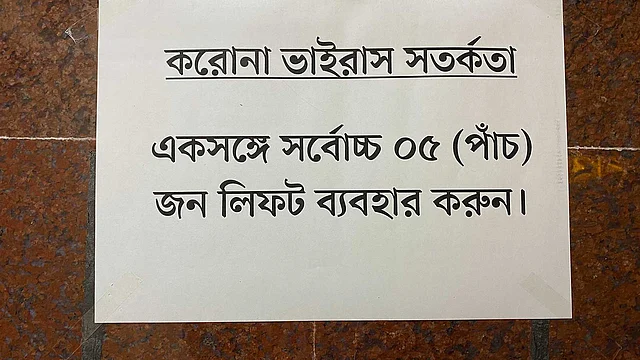 করোনা ভাইরাস সতর্কতা
একসঙ্গে সর্বোচ্চ ০৫ (পাঁচ)
জন লিফট ব্যবহার করুন।